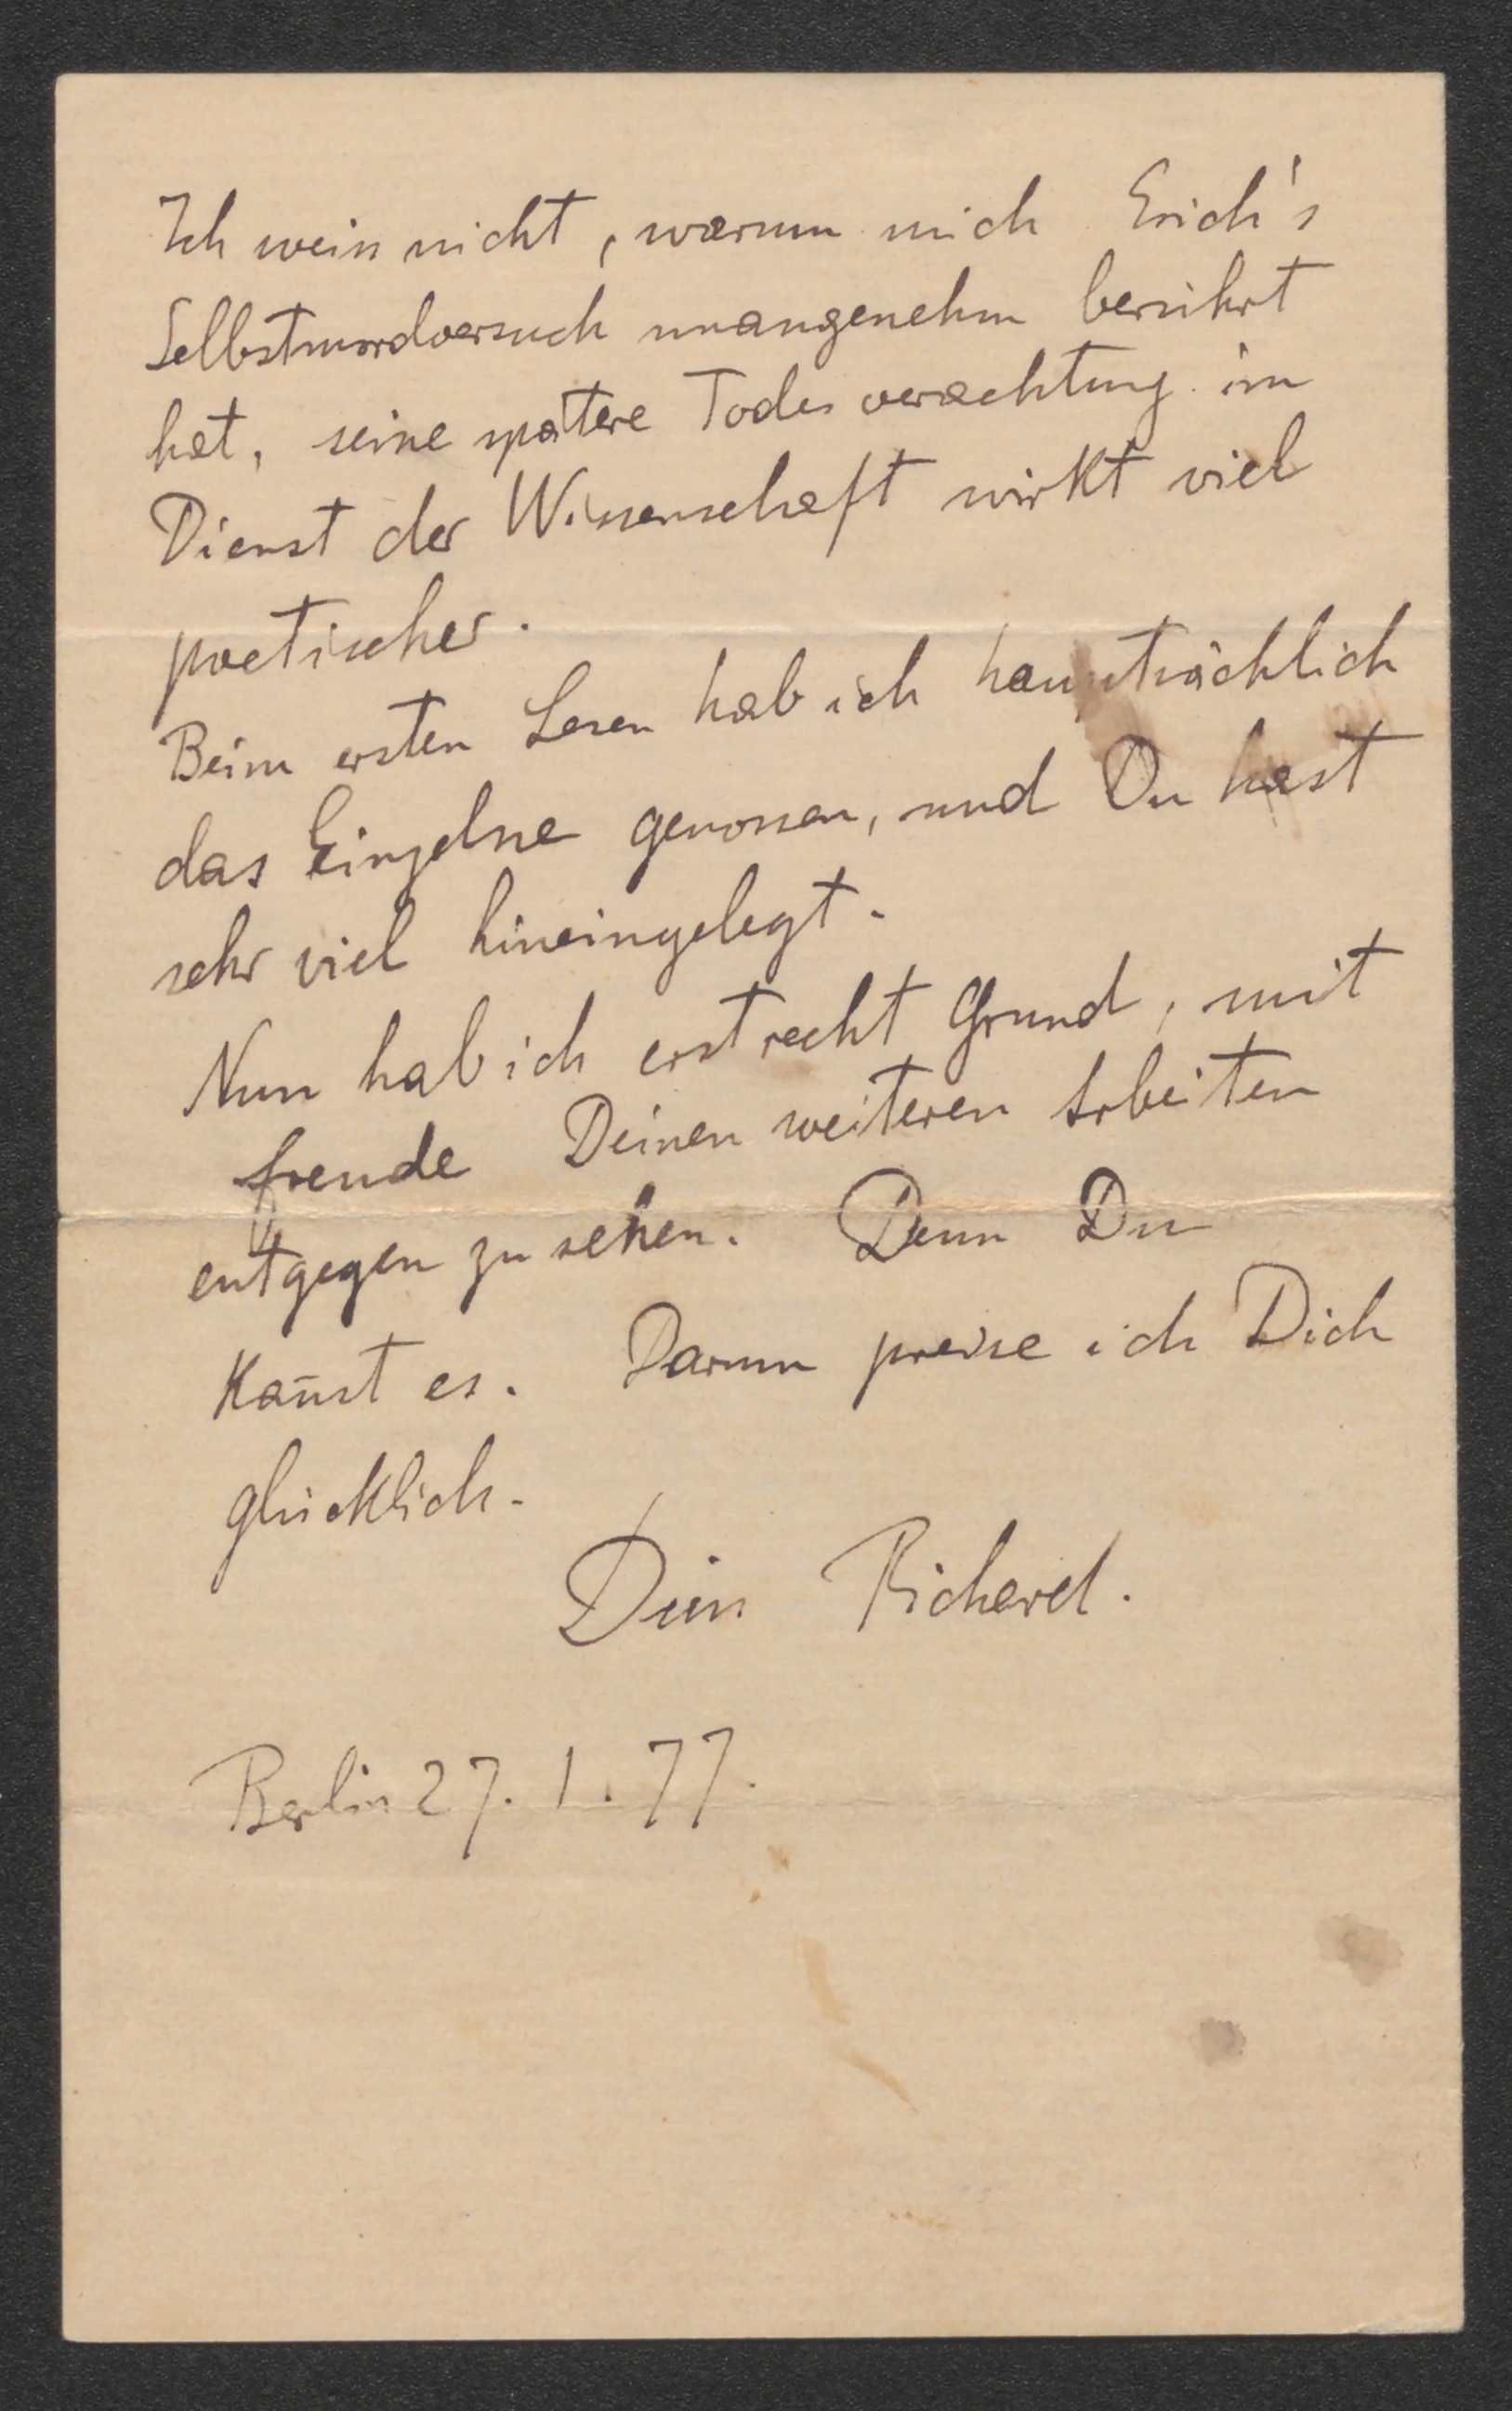 Ich weiss nicht, warum mich Erich's
Selbstmordversuch unangenehm berührt
hat, seine spätere Todesverachtung im
Dienst der Wissenschaft wirkt viel
poetischer.
Beim ersten Lesen hab ich hauptsächlich
das Einzelne genossen, und Du hast
sehr viel hineingelegt.
Nun hab ich erst recht Grund, mit
Freude Deinen weiteren Arbeiten
entgegen zu sehen. Denn Du
kan̄st es. Darum preise ich Dich
glücklich.
Dein Richard.
Berlin 27. 1. 77.